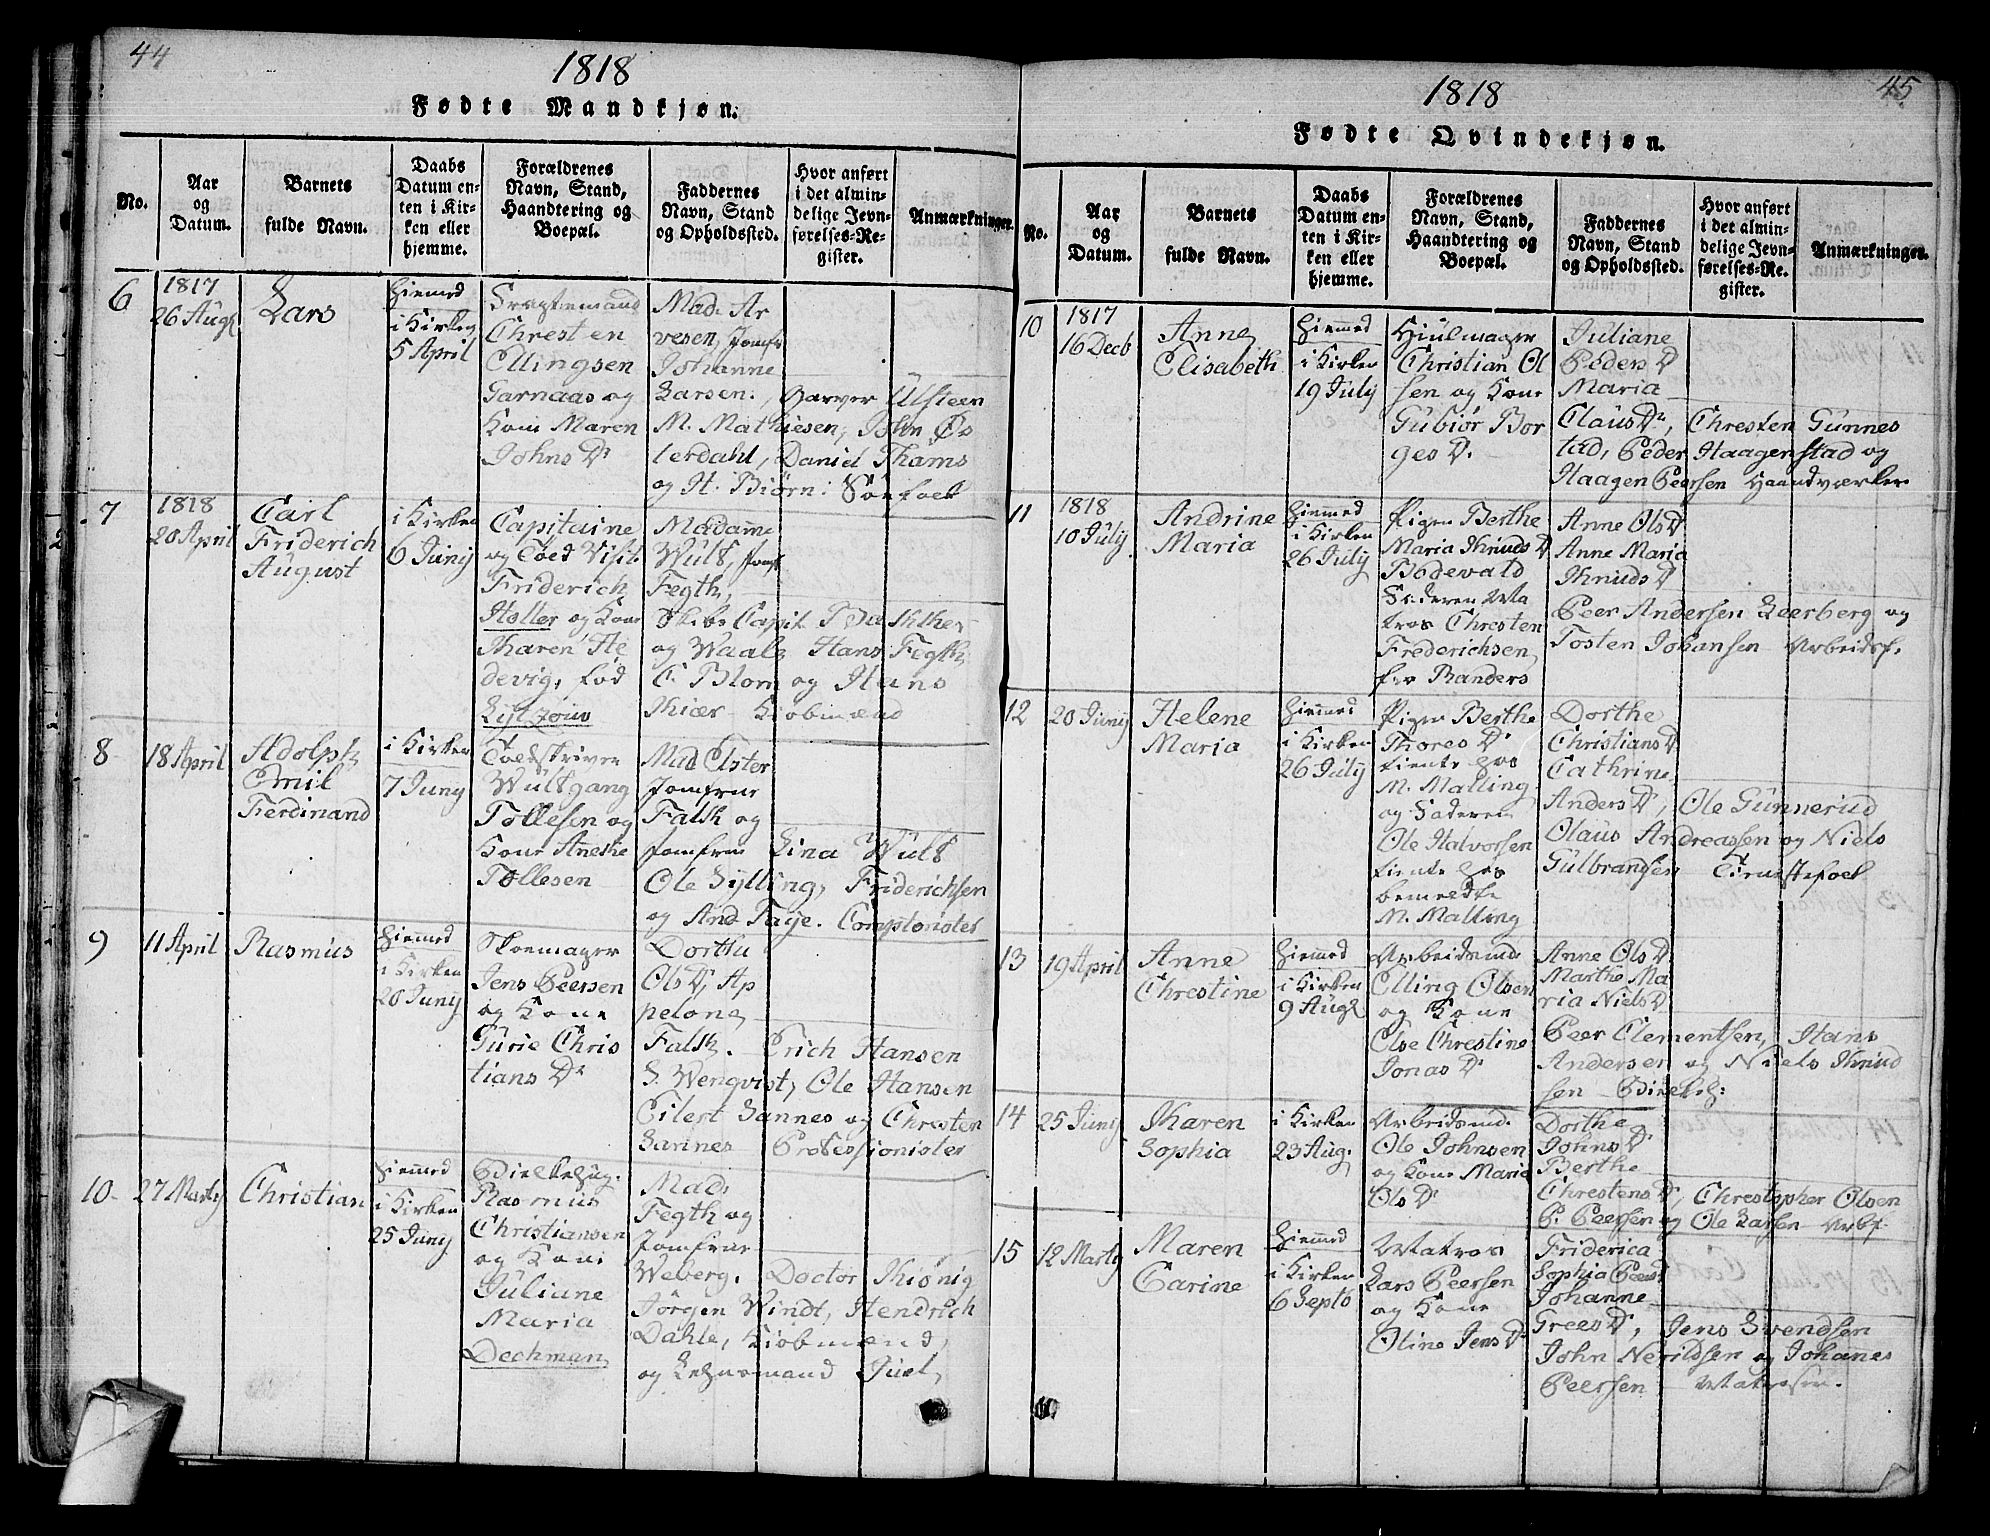 44
1818
Fødte Mandkjøn.
No.
Aar
og
Datum.
Barnets
fulde Navn.
Daabs
Datum en-
ten i Kir-
ken eller
hjemme.
Forældrenes
Navn, Stand,
Haandtering og
Boepæl.
Faddernes
Navn, Stand
og Opholdssted.
Hvor anført
i det almin-
delige Jevn-
førelses-Re-
gister.
Anmærkninger.
6
1817
26 Augs
Lars
Hiemed
i Kirken
5 April
Fragtemand
Christen
Ellingsen
Garnaas og
Kone Maren
Johns Dr
Mad. Ar
vesen, Jomfr
Johanne
Larsen.
Garver Ulsteen
M. Mathiesen, John Øs
terdahl, Daniel Thams
og H. Biørn: Søefolk
7
1818
20 April
Carl
Friderich
August
i Kirken
6 Junij
Capitaine
og Toed Visit.
Friderich
Holler og Kone
Karen He
devig, fød
Lytzow
Madamme
Wulf, Jomf
Fegth,
Skibs Capit. Bakker
og Waal, Hans Fegth,
C. Blom og Hans
Kiær Kiøbmænd
8
18 April
Adolph
Emil
Ferdinand
i Kirken
7 Junij
Toldskriver
Wulfgang
Tollesen og
Kone Anethe
Tollesen
Mad Elster
Jomfrue
Falk og
Jomfrue Lina Wulf
Ole Gylling, Friderichsen
og And Faye. Comptorister
9
11 April
Rasmus
Hiemed
i Kirken
20 Junij
Skoemager
Jens Peersen
og Kone
Gurie Chris
tians Dr
Dorthe
Ols Dr, Ap
pelone
Falk. Erich Hansen
S. Wenqvist, Ole Hansen
Eilert Sannes og Christen
Sannes Professionister
10
27 Martij
Christian
Hiemed
i Kirken
25 Junij
Bielkehug.
Rasmus
Christiansen
og Kone
Juliane
Maria
Dechman
Mad.
Fegth og
Jomfrue
Weberg. Doctor Kiønig
Jørgen Windt, Hendrich
Dahle, Kiøbmænd,
og Lehnsmand Juel
45
1818
Fødte Qvindekjøn.
No.
Aar
og
Datum.
Barnets
fulde Navn.
Daabs
Datum en-
ten i Kir-
ken eller
hjemme.
Forældrenes
Navn, Stand,
Haandtering og
Boepæl.
Faddernes
Navn, Stand
og Opholdssted.
Hvor anført
i det almin-
delige Jevn-
førelses-Re-
gister.
Anmærkninger.
10
1817
16 Decb
Anne
Elisabeth
Hiemed
i Kirken
19 July
Hiulmager
Christian Ol
sen og Kone
Gubiør Bor
ges D.
Juliane
Peders D
Maria
Claus Dr, Chresten Gunnes
tad, Peder Haagenstad og
Haagen Peersen Haandværker
11
1818
10 July
Andrine
Maria
Hiemed
i Kirken
26 July
Pigen Berthe
Maria Knuds D
Bodevald
Faderen Ma
tros Chresten
Frederichsen
fra Randers
Anne Ols D
Anne Maria
Knuds D
Peer Andersen Leerberg og
Tosten Johansen Arbeidsf.
12
20 Junij
Helene
Maria
Hiemed
i Kirken
26 July
Pigen Berthe
Thores Dr
tiente hos
M. Malling
og Faderen
Ole Halvorsen
tiente hos
bemeldte
M. Malling
Dorthe
Christians D
Cathrine
Anders D, Ole Gunnerud
Olaus Andreassen og Niels
Gulbrandsen Tienstefolk
13
19 April
Anne
Chrestine
Hiemed
i Kirken
9 Augs
Arbeidsmd.
Elling Olsen
og Kone
Else Chrestine
Jonas Dr
Anne Ols D
Marthe Ma
ria Niels D
Peer Clementsen, Hans
Andersen og Niels Knud
sen Bielkeh:
14
25 Junij
Karen
Sophia
i Kirken
23 Aug.
Arbeidsmd.
Ole Johnsen
og Kone Maria
Ols Dr
Dorthe
Johns D
Berthe
Chrestens D, Chrestopher Olsen
P. Peersen og Ole Larsen Arbf.
15
12 Martij
Maren
Carine
Hiemed
i Kirken
6 Septb
Matros
Lars Peersen
og Kone
Oline Jens D
Friderica
Sophia Peers D
Johanne
Grees D, Jens Svendsen
John Nerildsen og Johanes
Peersen Matroser.